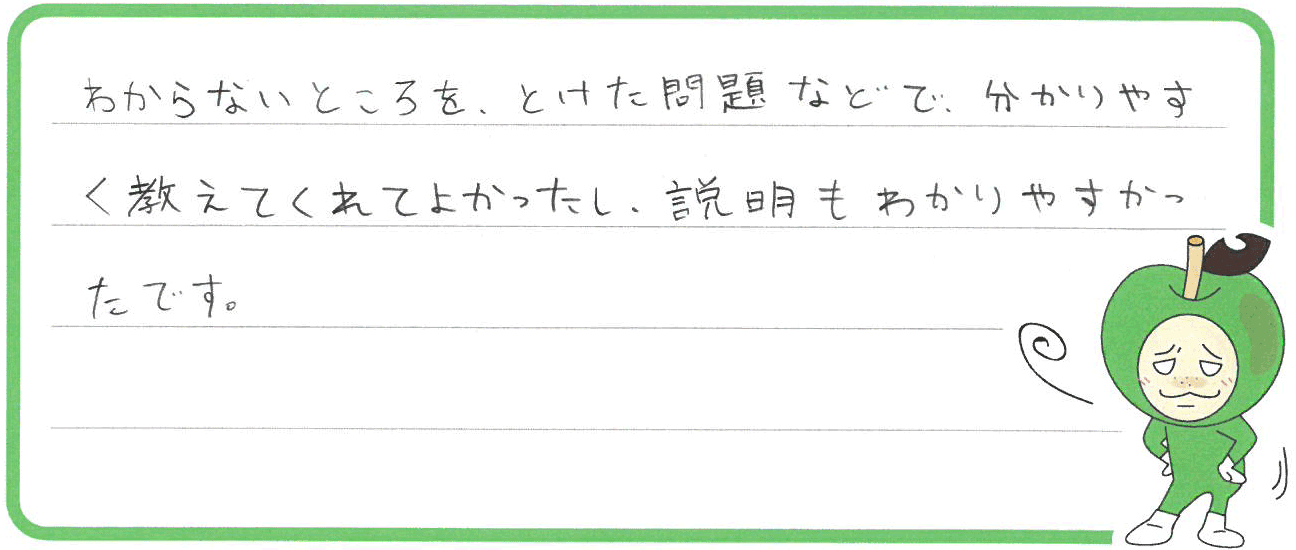 わからないところを、とけた問題などで、分かりやす
く教えてくれてよかったし、説明もわかりやすかっ
たです。